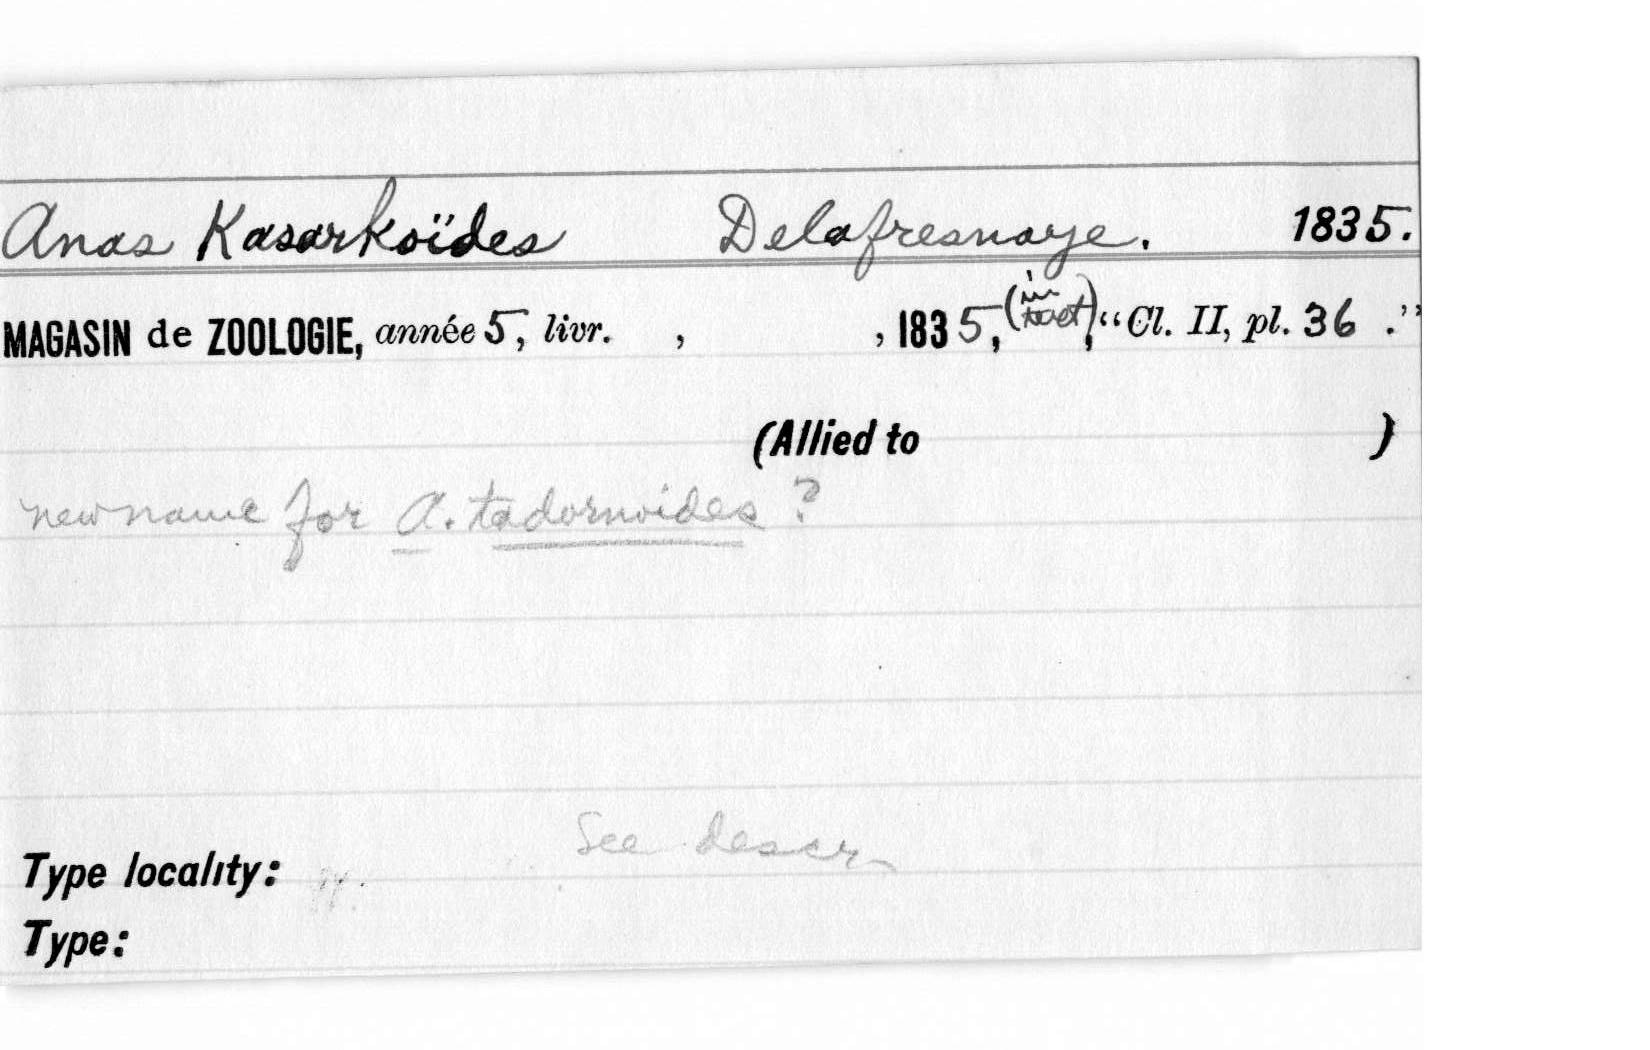 Anas Kasarkoïdes Delafresnaye. 1835.
MAGASIN de ZOOLOGIE, année 5, livr. , , 1835, (in text), "Cl. II, pl. 36 ."
(Allied to )
new name for A. tadornoides ?
See descr
Type locality:
Type: